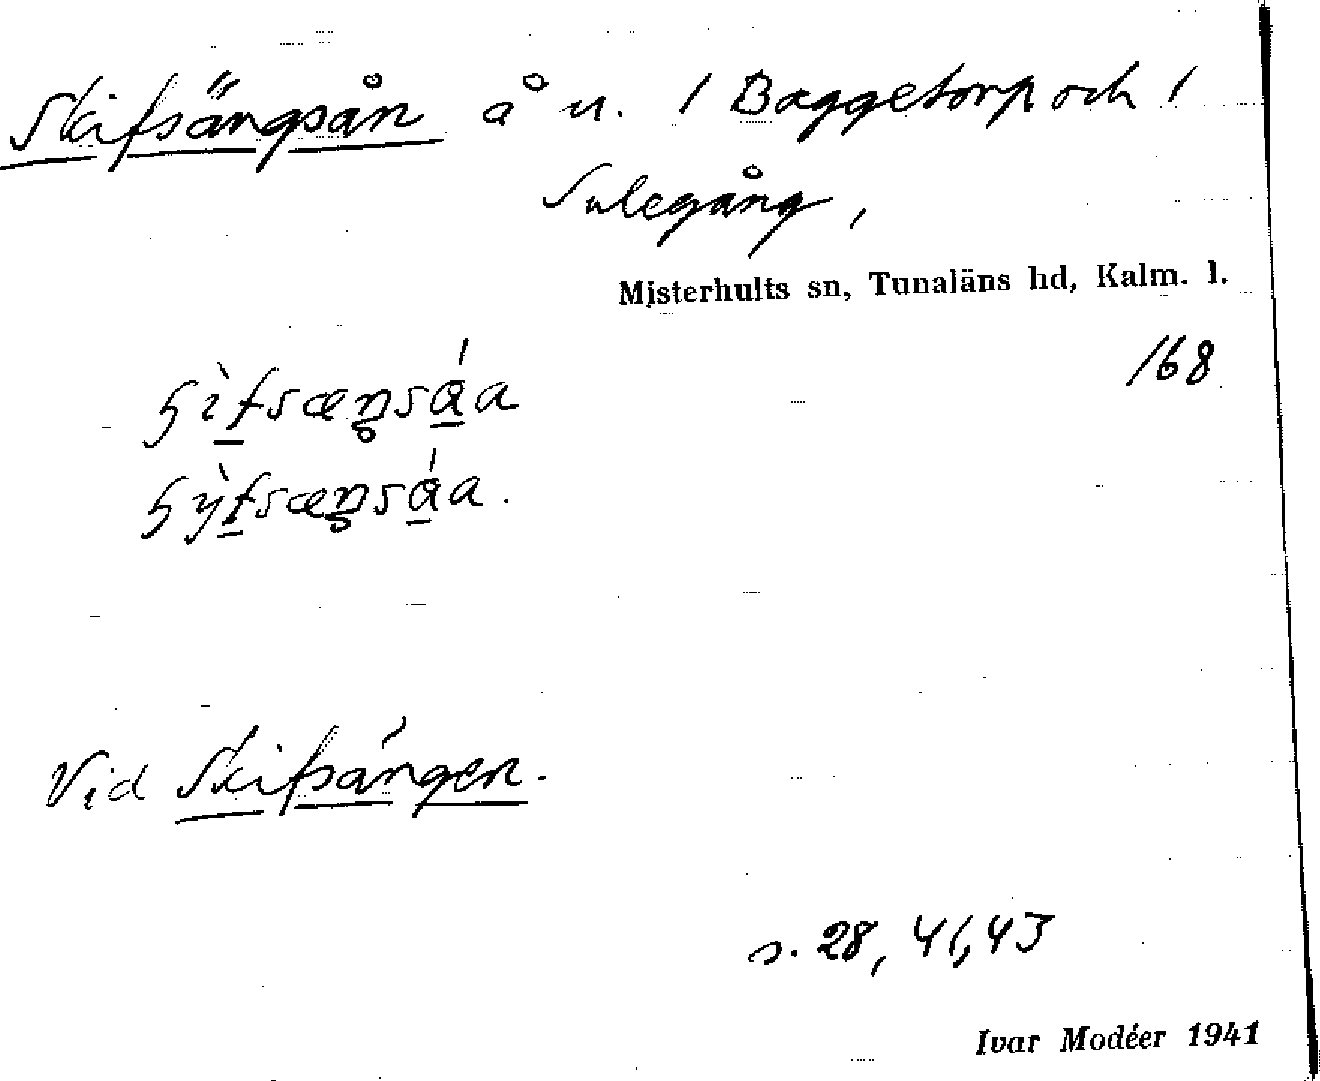 Skifsängsån å u. / Baggetorp och /
Sulegång,
Misterhults sn, Tunaläns hd, Kalm. l.
168
Vid Skifsängen.
s. 28, 41, 43
Ivar Modéer 1941